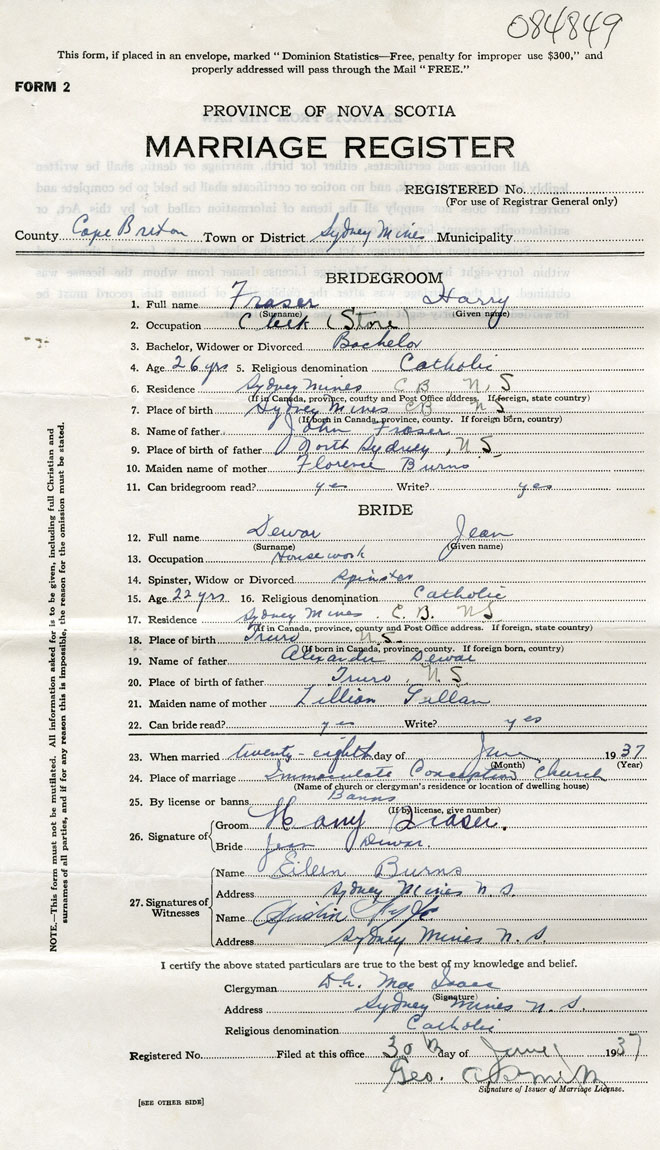 084849
This form, if placed in an envelope, marked "Dominion Statistics—Free, penalty for improper use $300," and
properly addressed will pass through the Mail "FREE."
FORM 2
PROVINCE OF NOVA SCOTIA
MARRIAGE REGISTER
REGISTERED No.
(For use of Registrar General only)
County Cape Breton Town or District Sydney Mines Municipality
BRIDEGROOM
1. Full name Fraser Harry
(Surname) (Given name)
2. Occupation Clerk (Store)
3. Bachelor, Widower or Divorced Bachelor
4. Age 26 yrs 5. Religious denomination Catholic
6. Residence Sydney Mines C B N. S
(If in Canada, province, county and Post Office address. If foreign, state country)
7. Place of birth Sydney Mines CB N S
(If born in Canada, province, county. If foreign born, country)
8. Name of father John Fraser
9. Place of birth of father North Sydney, N. S.
10. Maiden name of mother Florence Burns
11. Can bridegroom read? yes Write? yes
BRIDE
12. Full name Dewar Jean
(Surname) (Given name)
13. Occupation Housework
14. Spinster, Widow or Divorced Spinster
15. Age 22 yrs 16. Religious denomination Catholic
17. Residence Sydney Mines C. B. N S
(If in Canada, province, county and Post Office address. If foreign, state country)
18. Place of birth Truro N. S.
(If born in Canada, province, county. If foreign born, country)
19. Name of father Alexander Dewar
20. Place of birth of father Truro, N S
21. Maiden name of mother Lillian Gillan
22. Can bride read? yes Write? yes
23. When married twenty-eighth day of June 1937
(Month) (Year)
24. Place of marriage Immaculate Conception Church
(Name of church or clergyman's residence or location of dwelling house)
25. By license or banns Banns
(If by license, give number)
26. Signature of Groom Harry Fraser.
Bride Jean Dewar.
27. Signatures of Witnesses
Name Eileen Burns
Address Sydney Mines N. S.
Name Austin
Address Sydney Mines N. S.
I certify the above stated particulars are true to the best of my knowledge and belief.
Clergyman Mac Isaac
(Signature)
Address Sydney Mines N. S.
Religious denomination Catholic
Registered No. Filed at this office 30th day of June 1937
Geo.
Signature of Issuer of Marriage License.
[SEE OTHER SIDE]
NOTE.—This form must not be mutilated. All information asked for is to be given, including full Christian and
surnames of all parties, and if for any reason this is impossible, the reason for the omission must be stated.